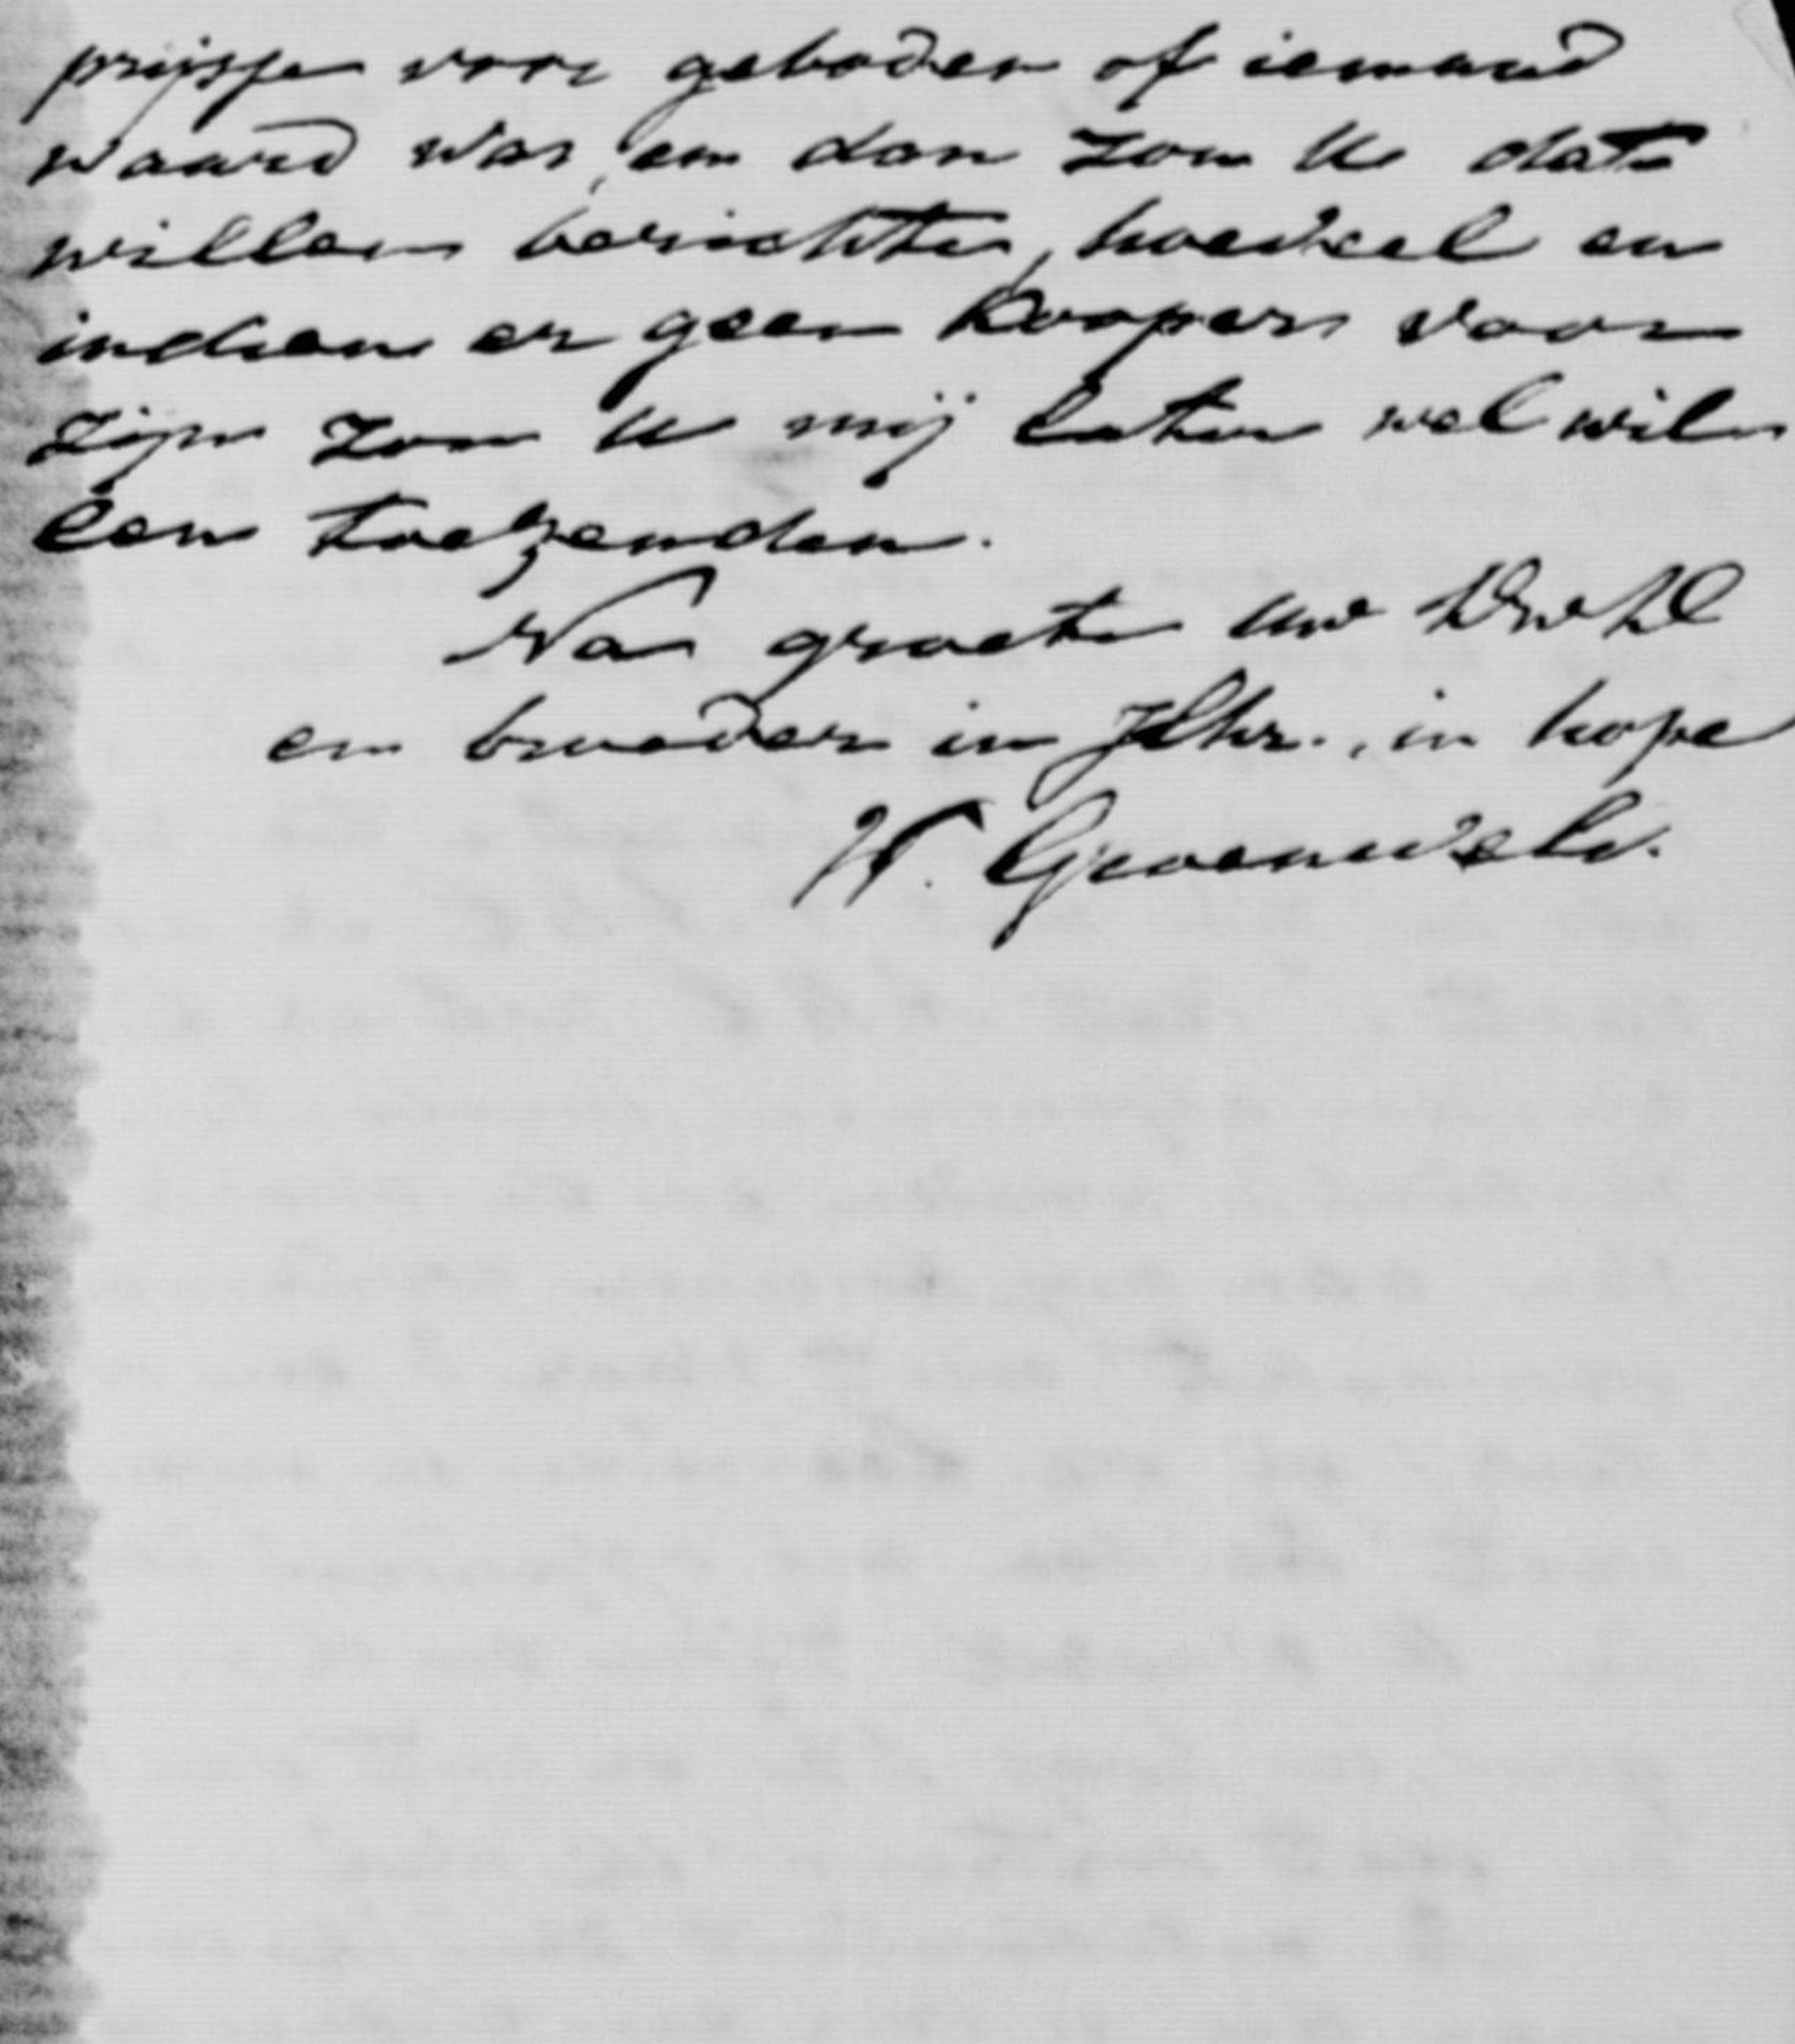 prijsje voor geboden of iemand
waard was, en dan zou U dat
willen berichten, hoeveel en
indien er geen koopers voor
zijn zou U mij laten wel wil
len toezenden.
Na groete uw
en broeder in JChr., in hope
W. Groeneveld.